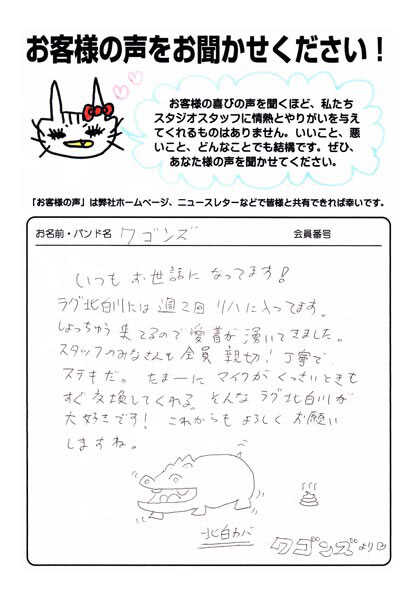 お客様の声をお聞かせください！
お客様の喜びの声を聞くほど、私たち
スタジオスタッフに情熱とやりがいを与え
てくれるものはありません。いいこと、悪
いこと、どんなことでも結構です。ぜひ、
あなた様の声を聞かせてください。
「お客様の声」は弊社ホームページ、ニュースレターなどで皆様と共有できれば幸いです。
お名前・バンド名 ワゴンズ 会員番号
いつもお世話になってます！
ラグ北白川には週2回リハに入ってます。
しょっちゅう来てるので愛着が湧いてきました。
スタッフのみなさんも全員親切！丁寧で
ステキだ。たまーにマイクがくっさいときも
すぐ交換してくれる。そんなラグ北白川が
大好きです！これからもよろしくお願い
しますね。
北白カバ
ワゴンズより